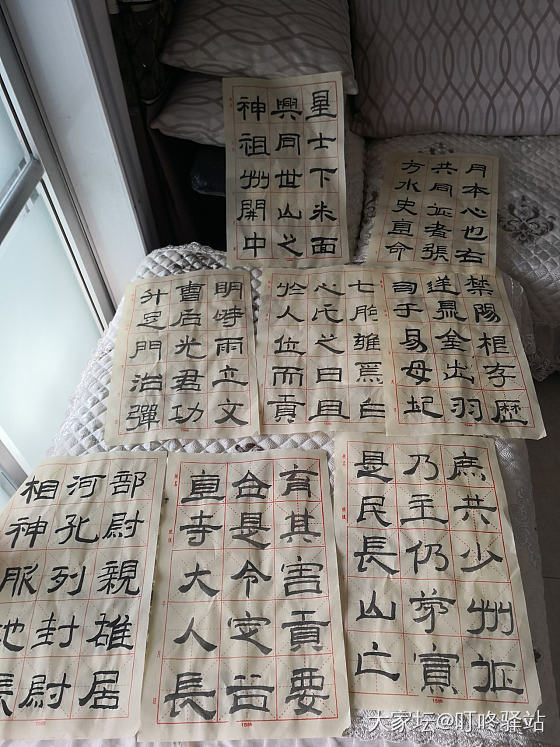 星士下米面
興同世山之
神祖州開中
月本心也右
共同征者張
方水史直命
明時雨立文
曹后光君功
升定門治彈
禁陽相李歷
七
心氏之日且
人位而貢
司于易母圮
部尉親雄居
河孔列封尉
相神服地長
育其害貢要
合是令定益
直寺大人長
庶共少州征
乃主仍等實
是民長山亡
大家坛@叮咚驿站